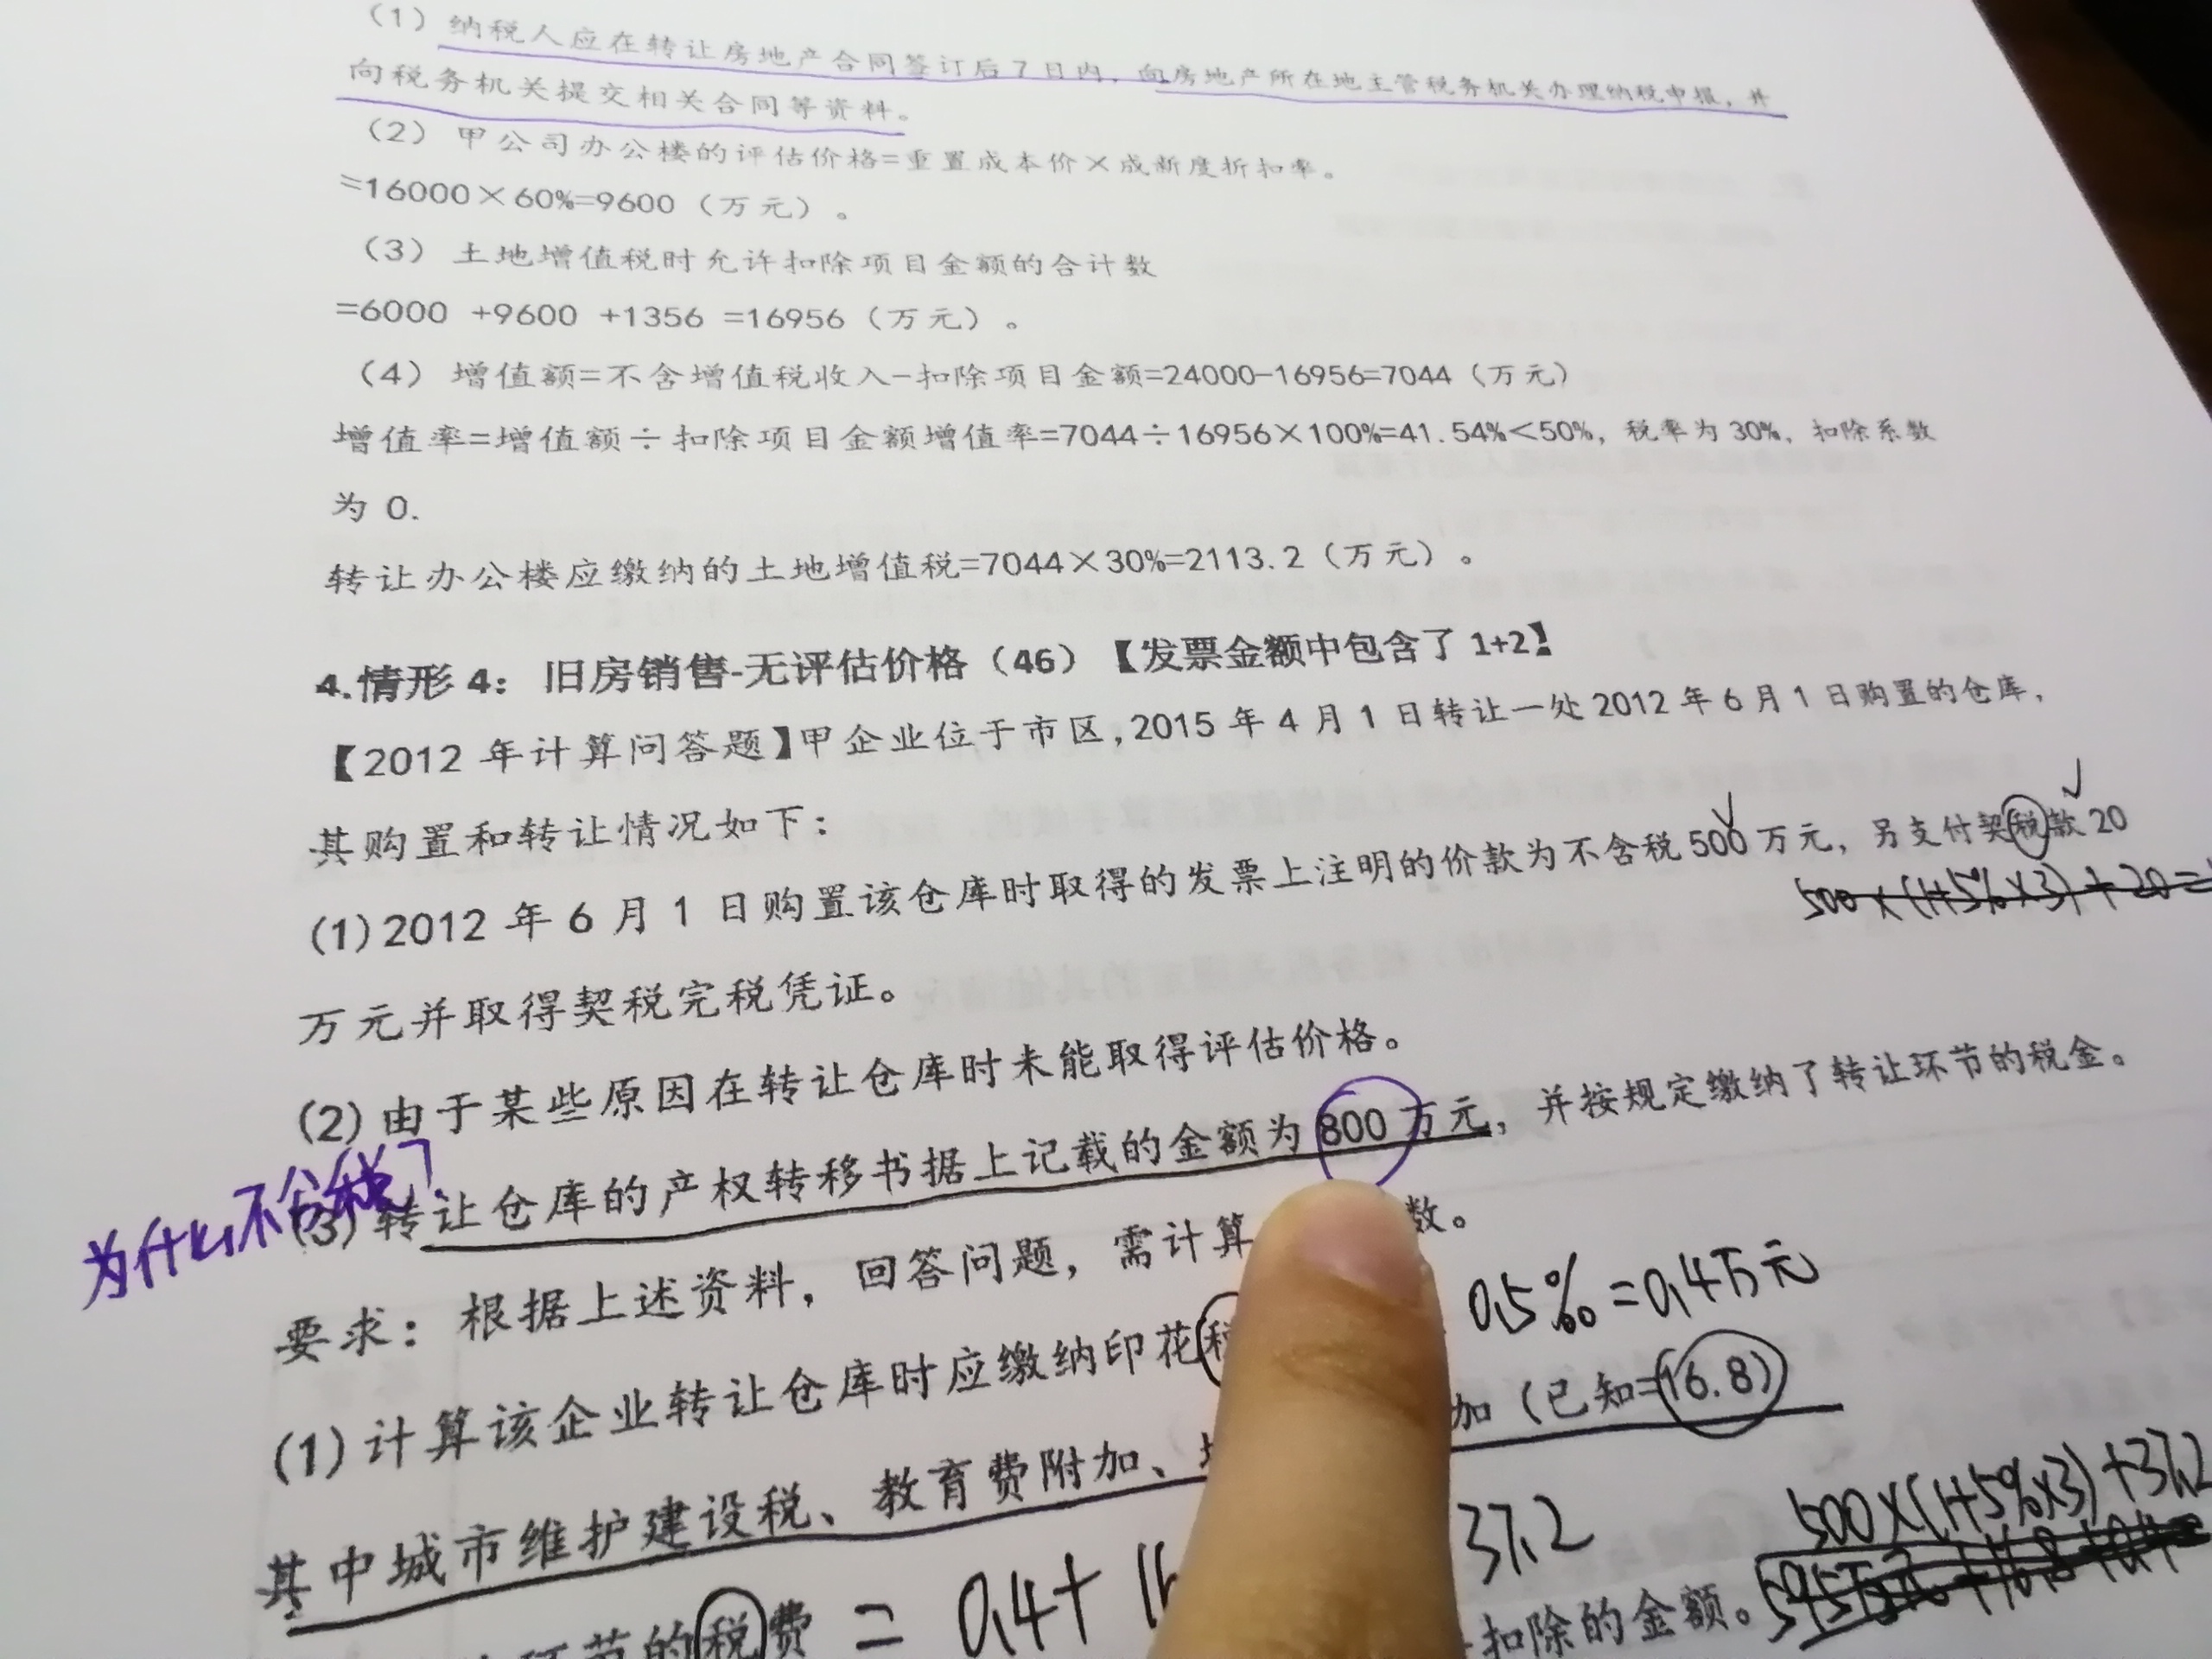 （1）纳税人应在转让房地产合同签订后7日内，向房地产所在地主管税务机关办理纳税申报，并
向税务机关提交相关合同等资料。
（2）甲公司办公楼的评估价格=重置成本价×成新度折扣率。
=16000×60%=9600（万元）。
（3）土地增值税时允许扣除项目金额的合计数
=6000 +9600 +1356 =16956（万元）。
（4）增值额=不含增值税收入-扣除项目金额=24000-16956=7044（万元）
增值率=增值额÷扣除项目金额增值率=7044÷16956×100%=41.54%<50%，税率为30%，扣除系数
为 0.
转让办公楼应缴纳的土地增值税=7044×30%=2113.2（万元）。
4.情形4：旧房销售-无评估价格（46）【发票金额中包含了1+2】
【2012年计算问答题】甲企业位于市区,2015年4月1日转让一处2012年6月1日购置的仓库，
其购置和转让情况如下：
(1)2012年6月1日购置该仓库时取得的发票上注明的价款为不含税500万元，另支付契税款20
500×(1+5%×3)+20=
万元并取得契税完税凭证。
(2)由于某些原因在转让仓库时未能取得评估价格。
(3)转让仓库的产权转移书据上记载的金额为800万元，并按规定缴纳了转让环节的税金。
为什么不含税？
要求：根据上述资料，回答问题，需计算 数。
0.5‰=0.4万元
(1)计算该企业转让仓库时应缴纳印花税 加（已知=16.8）
其中城市维护建设税、教育费附加、
37.2
500×(1+5%×3)+37.2
环节的税费 = 0.4+ 16
扣除的金额。